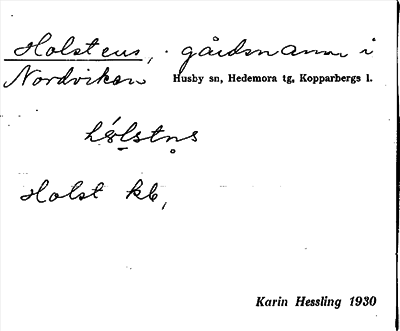 Holstens, gårdsnamn i
Nordviken Husby sn, Hedemora tg, Kopparbergs l.
Holst kb,
Karin Hessling 1930